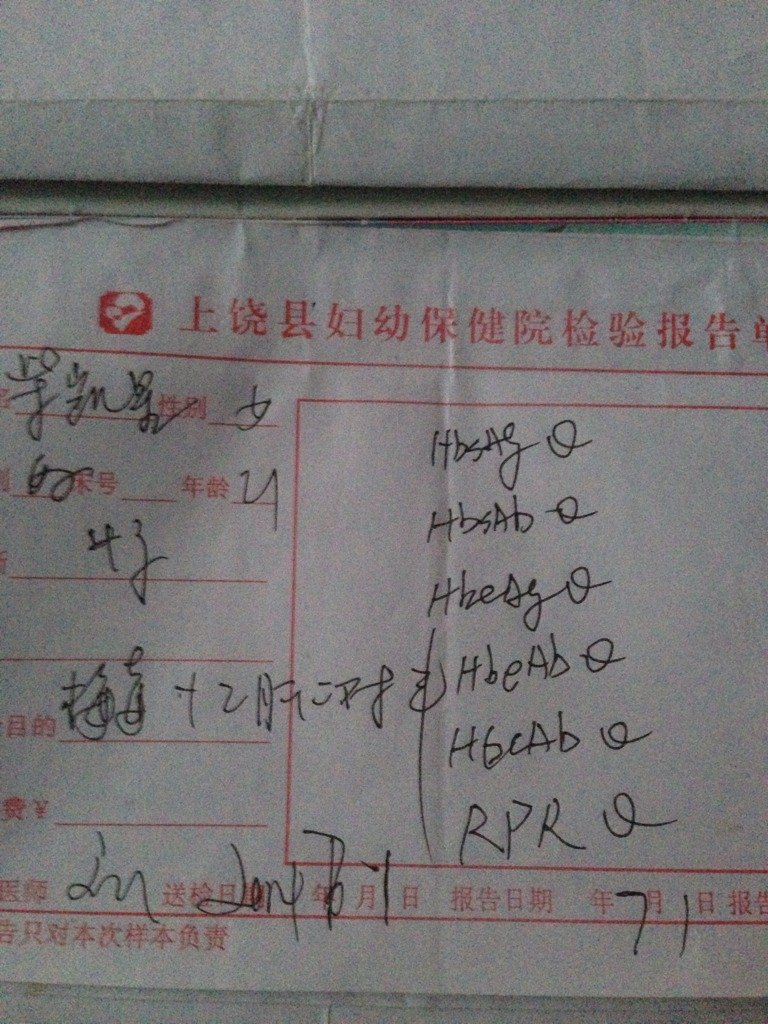 上饶县妇幼保健院检验报告单
性别 女
床号 年龄 21
HbsAg ⊖
HbsAb ⊖
HbeAg ⊖
HbeAb ⊖
HbcAb ⊖
RPR ⊖
目的 梅毒 + 乙肝二对半
费¥
医师 送检日期 2014年7月1日 报告日期 年7月1日 报告
告只对本次样本负责